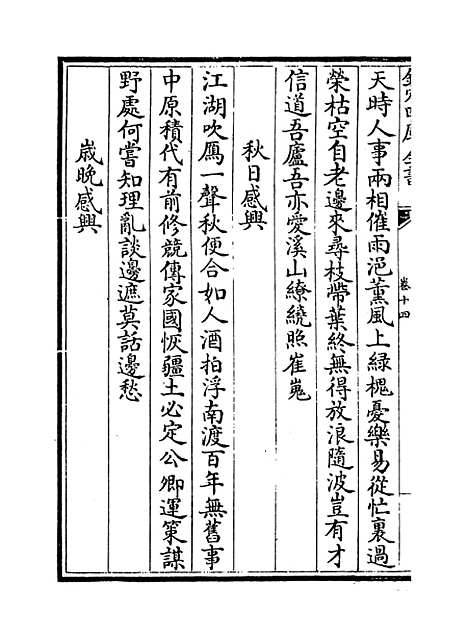 欽定四庫全書
卷十四
天時人事兩相催雨浥薰風上綠槐憂樂易從忙裏過
榮枯空自老邊來尋枝帶葉終無得放浪隨波豈有才
信道吾廬吾亦愛溪山繚繞照崔嵬
秋日感興
江湖吹鴈一聲秋便合如人酒拍浮南渡百年無舊事
中原積代有前修競傳家國恢疆土必定公卿運策謀
野處何嘗知理亂談邊遮莫話邊愁
歲晚感興